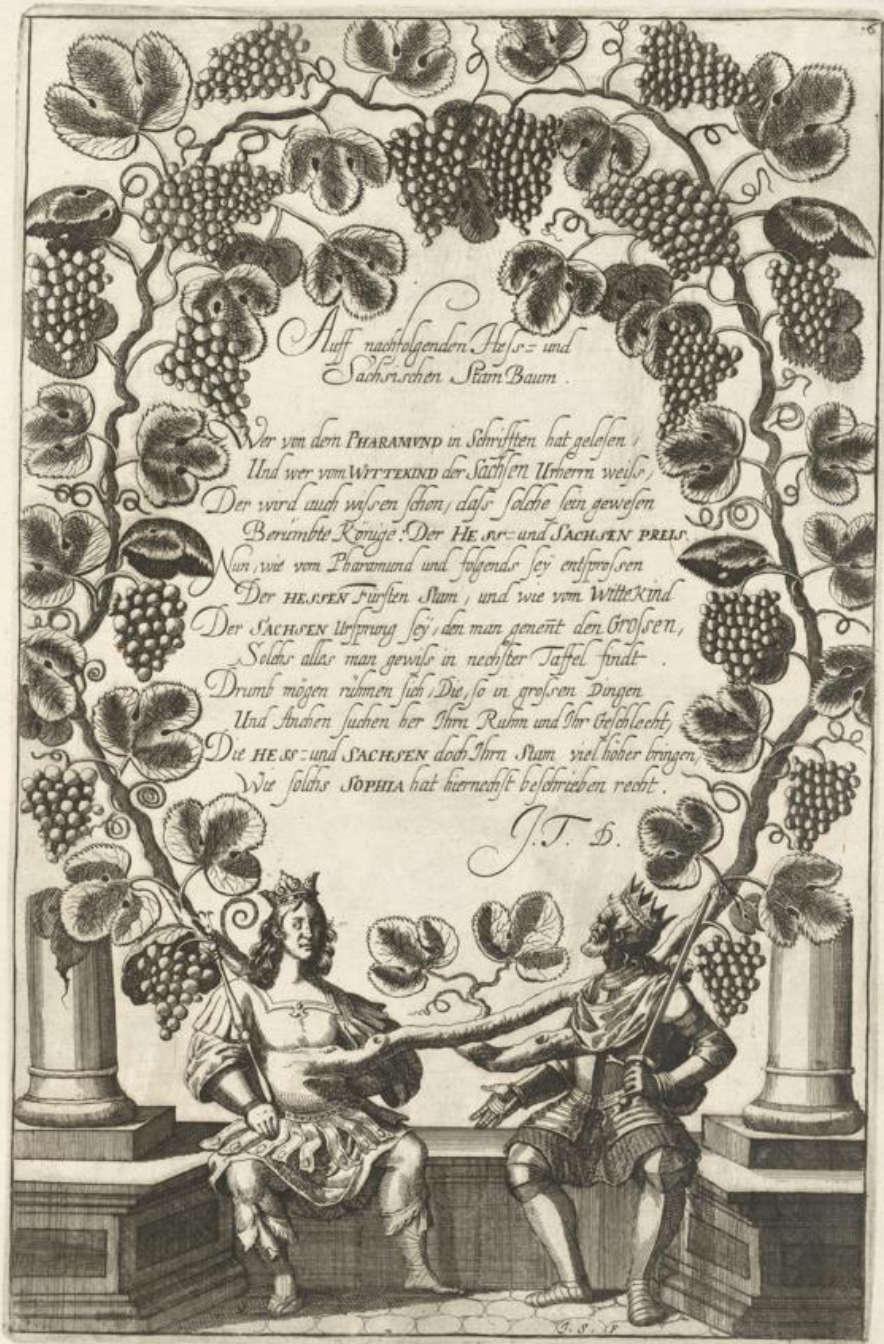 16
Auff nachfolgenden Hess= und
Sächsischen Stam Baum.
Wer von dem PHARAMVND in Schrifften hat gelesen,
Und wer vom WITTEKIND der Sachsen Urherrn weiss,
Der wird auch wissen schon, dass solche sein gewesen
Berümbte Könige: Der HESS= und SACHSEN PREIS.
Nun, wie vom Pharamund und folgends sey entsprossen
Der HESSEN Fürsten Stam, und wie vom Wittekind
Der SACHSEN Ursprung sey, den man genent den Grossen,
Solchs alles man gewiss in nechster Taffel findt.
Drumb mögen rühmen sich, Die, so in grossen Dingen
Und Anchen suchen her Ihrn Ruhm und Ihr Geschlecht,
Die HESS= und SACHSEN doch Ihrn Stam viel höher bringen,
Wie solchs SOPHIA hat hiernechst beschrieben recht.
J. T. D.
J. S. F